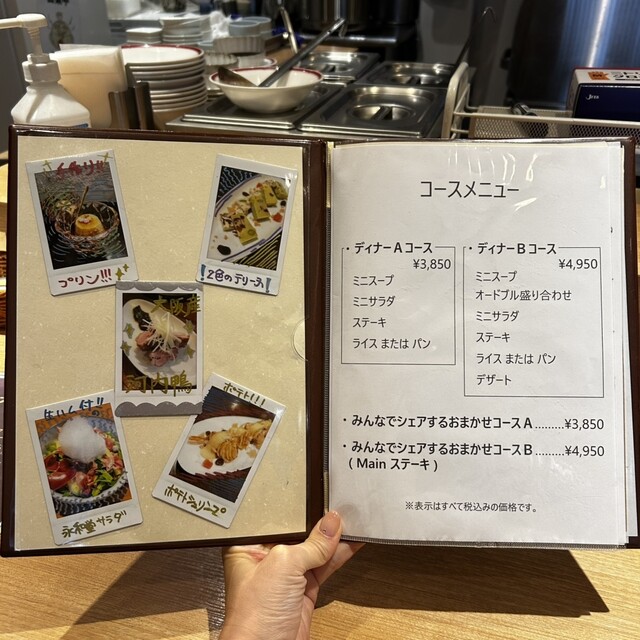 手作り!!
プリン!!!
2色のテリーヌ
大阪産
河内鴨
永和堂サラダ
ポテト!!!
コースメニュー
・ディナーAコース
¥3,850
ミニスープ
ミニサラダ
ステーキ
ライス または パン
・ディナーBコース
¥4,950
ミニスープ
オードブル盛り合わせ
ミニサラダ
ステーキ
ライス または パン
デザート
・みんなでシェアするおまかせコースA.........¥3,850
・みんなでシェアするおまかせコースB.........¥4,950
( Main ステーキ )
※表示はすべて税込みの価格です。